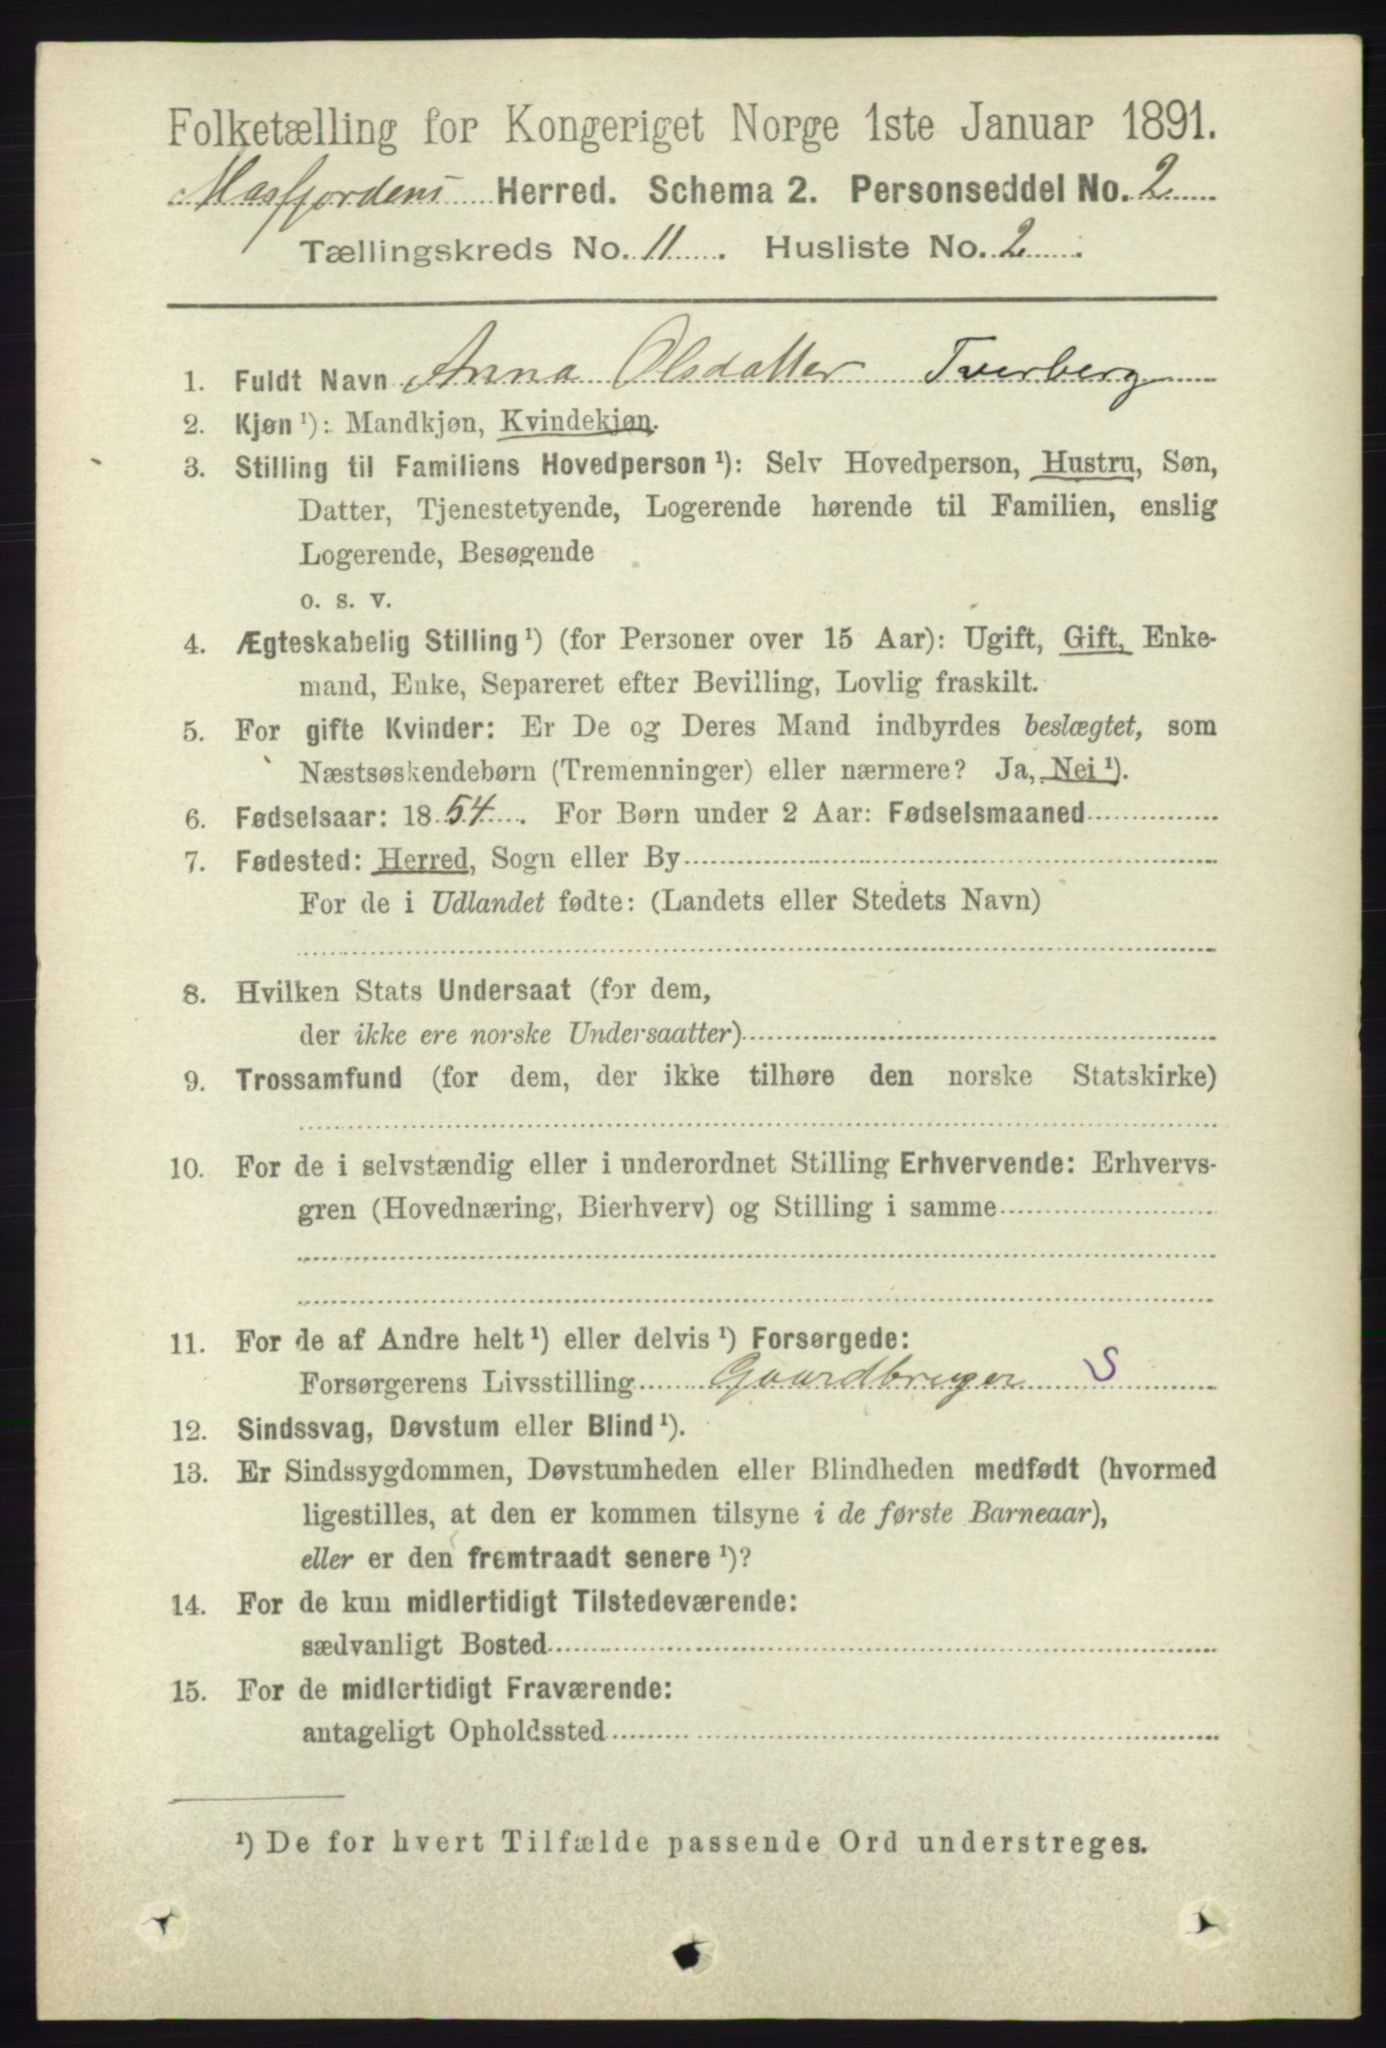 Folketælling for Kongeriget Norge 1ste Januar 1891.
Masfjordens Herred. Schema 2. Personseddel No. 2
Tællingskreds No. 11. Husliste No. 2.
1. Fuldt Navn Anna Olsdatter Tverberg
2. Kjøn ¹): Mandkjøn, Kvindekjøn.
3. Stilling til Familiens Hovedperson ¹): Selv Hovedperson, Hustru, Søn,
Datter, Tjenestetyende, Logerende hørende til Familien, enslig
Logerende, Besøgende
o. s. v.
4. Ægteskabelig Stilling ¹) (for Personer over 15 Aar): Ugift, Gift, Enke-
mand, Enke, Separeret efter Bevilling, Lovlig fraskilt.
5. For gifte Kvinder: Er De og Deres Mand indbyrdes beslægtet, som
Næstsøskendebørn (Tremenninger) eller nærmere? Ja, Nei ¹).
6. Fødselsaar: 1854. For Børn under 2 Aar: Fødselsmaaned
7. Fødested: Herred, Sogn eller By
For de i Udlandet fødte: (Landets eller Stedets Navn)
8. Hvilken Stats Undersaat (for dem,
der ikke ere norske Undersaatter)
9. Trossamfund (for dem, der ikke tilhøre den norske Statskirke)
10. For de i selvstændig eller i underordnet Stilling Erhvervende: Erhvervs-
gren (Hovednæring, Bierhverv) og Stilling i samme
11. For de af Andre helt ¹) eller delvis ¹) Forsørgede:
Forsørgerens Livsstilling Gaardbruger S
12. Sindssvag, Døvstum eller Blind ¹).
13. Er Sindssygdommen, Døvstumheden eller Blindheden medfødt (hvormed
ligestilles, at den er kommen tilsyne i de første Barneaar),
eller er den fremtraadt senere ¹)?
14. For de kun midlertidigt Tilstedeværende:
sædvanligt Bosted
15. For de midlertidigt Fraværende:
antageligt Opholdssted
¹) De for hvert Tilfælde passende Ord understreges.